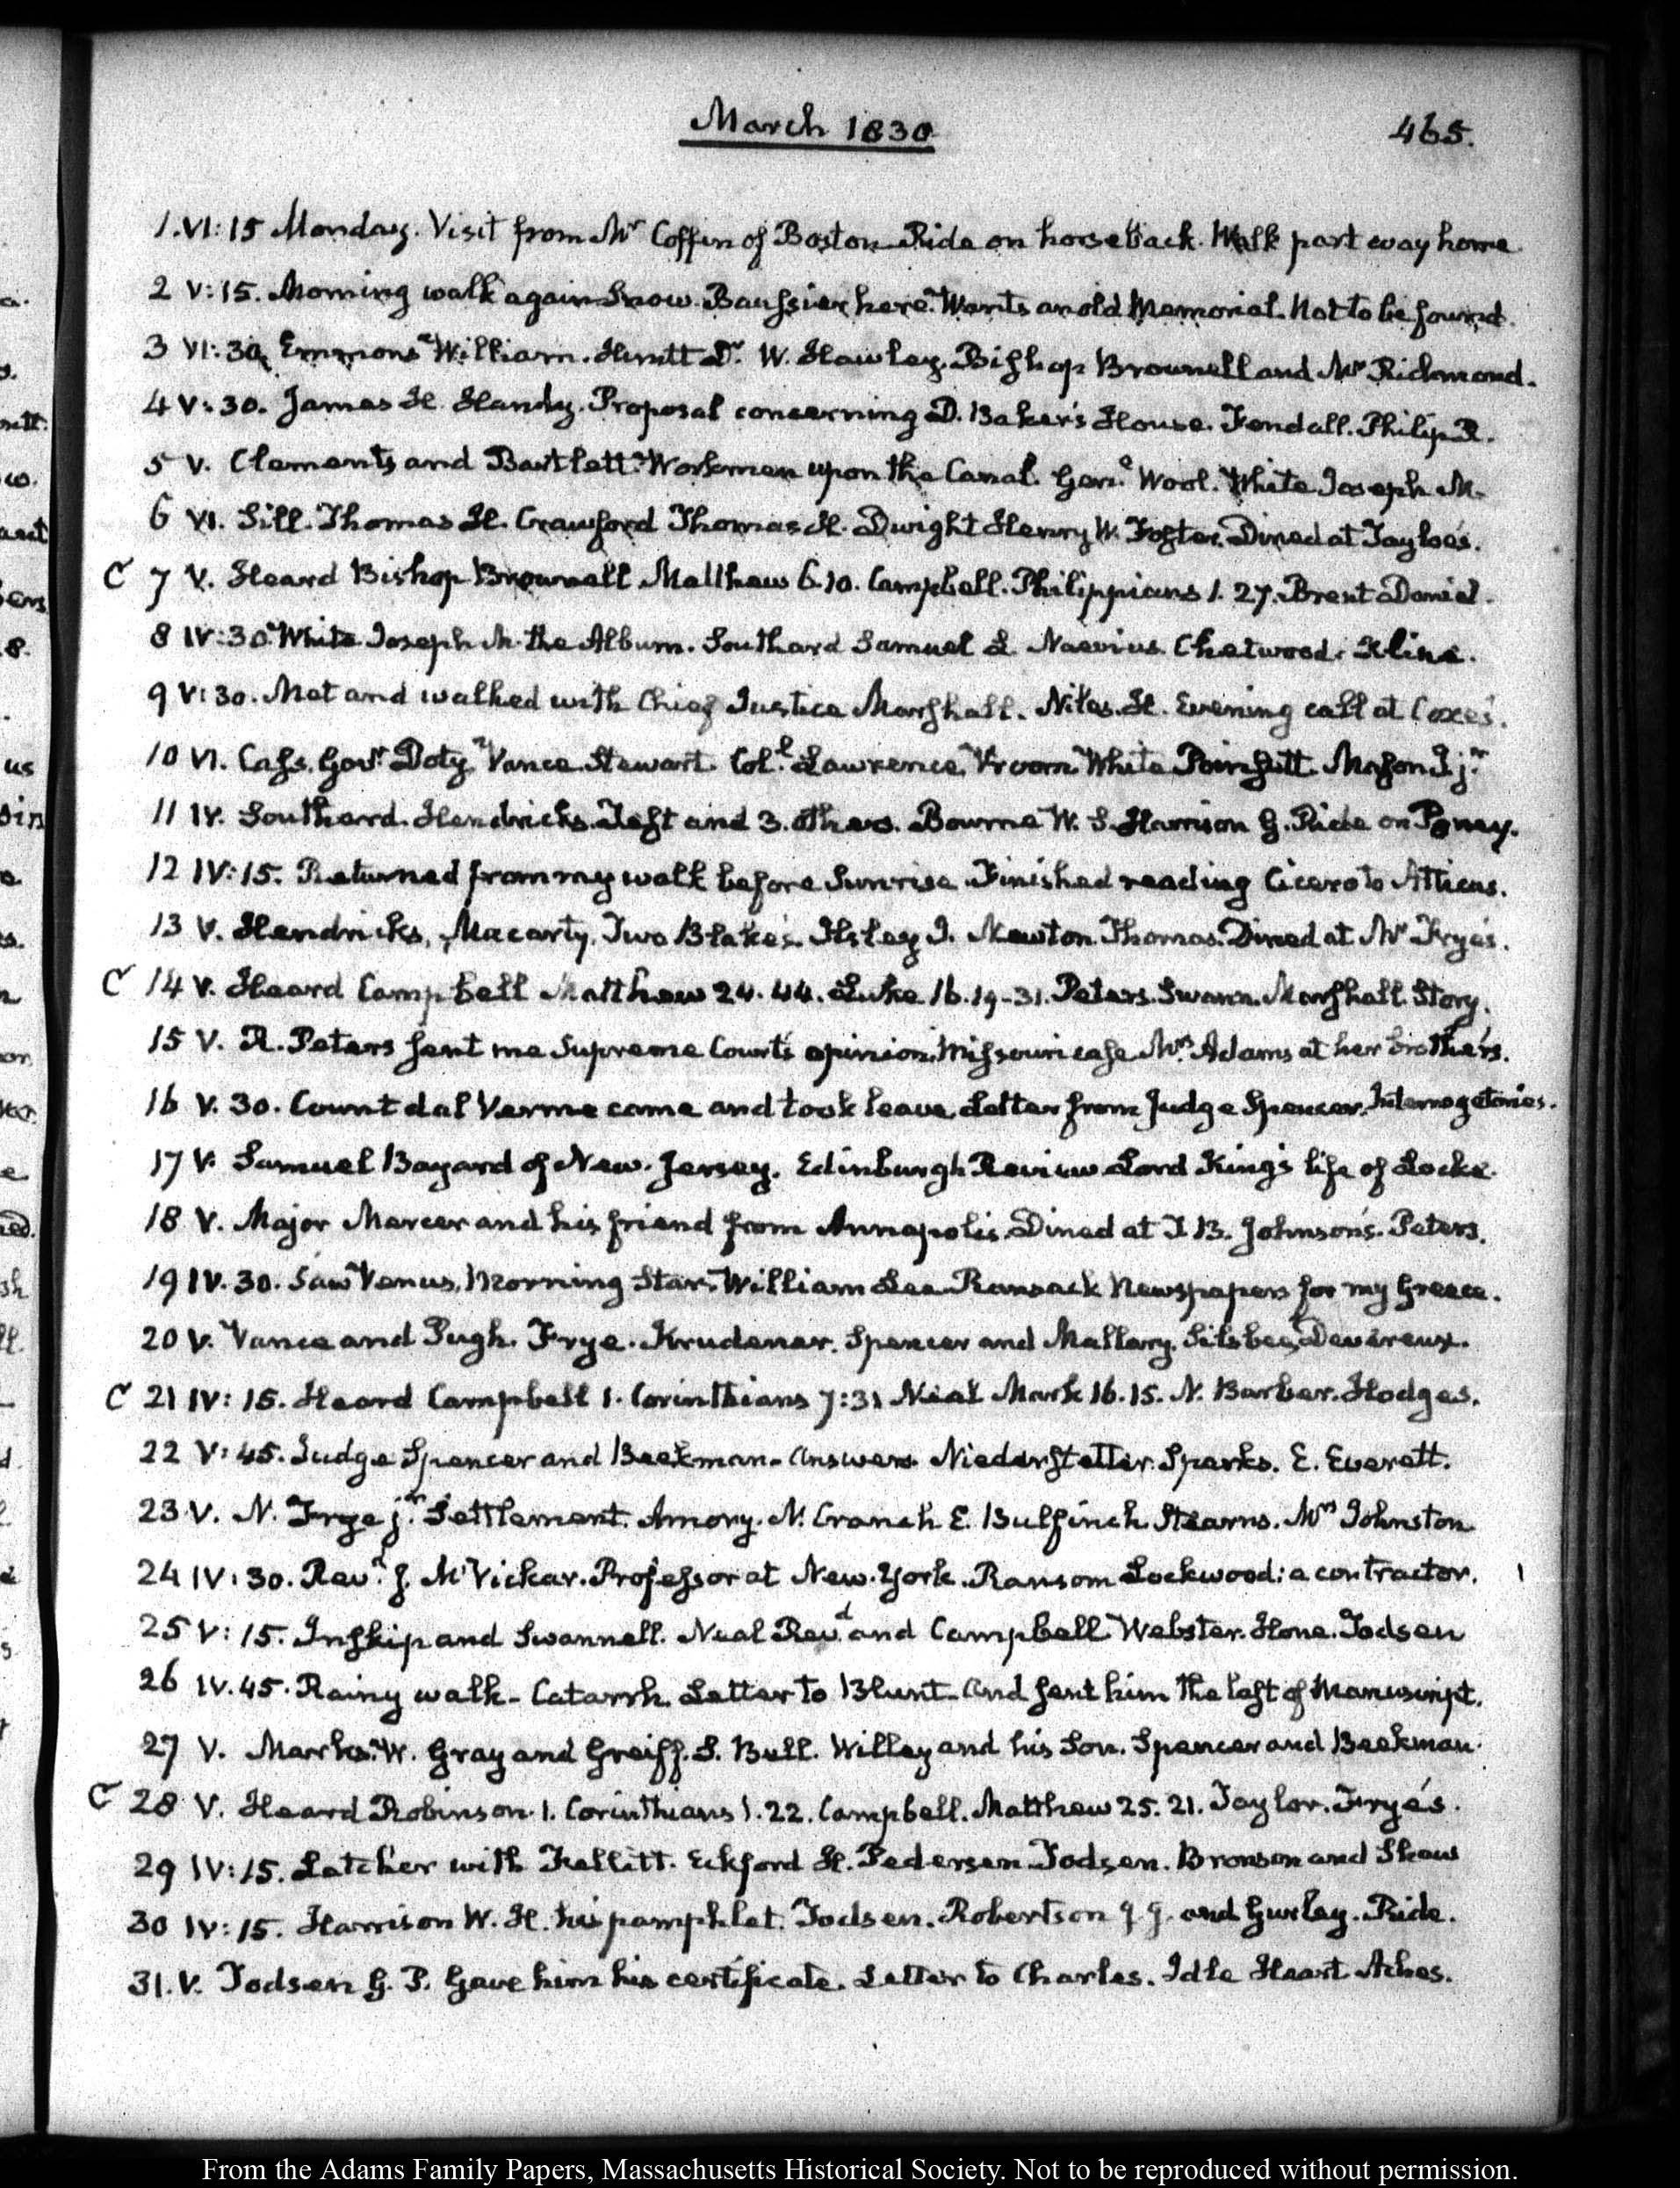 March 1830
465.
1. VI:15 Monday. Visit from Mr Coffin of Boston Ride on horseback. Walk part way home
2 V:15. Morning walk again Snow. here. Wants an old Memorial. Not to be found.
3 VI:30. Emmons William. Hewitt Dr. W. Hawley. Bishop Brownell and Mr Richmond.
4 V:30. James H. Handy. Proposal concerning D. Baker's House. Fendall. Philip R.
5 V. Clements and Bartlett. Workmen upon the Canal. Genl. Wool. White Joseph M.
6 VI. Sill. Thomas H. Crawford Thomas H. Dwight Henry W. Foster. Dined at Tayloe's.
C 7 V. Heard Bishop Brownell Matthew 6.10. Campbell. Philippians 1. 27. Brent Daniel.
8 IV:30. White Joseph M. the Album. Southard Samuel L Naevius. Chetwood. Kline.
9 V:30. Met and walked with Chief Justice Marshall. Niles. H. Evening call at Coxe's.
10 VI. Cass. Govr. Doty, Vance Stewart. Coll. Lawrence, Vroom White Poinsett. Mason J. jr
11 IV. Southard. Hendricks. Taft and 3. others. Bourne W. S. Harrison G. Ride on Poney.
12 IV:15. Returned from my walk before Sunrise. Finished reading Cicero to Atticus.
13 V. Hendricks, Macarty. Two Blake's. Ilsley I. Newton Thomas. Dined at Mr Frye's.
C 14 V. Heard Campbell Matthew 24. 44. Luke 16. 19-31. Peters. Swann. Marshall. Story.
15 V. R. Peters sent me Supreme Court's opinion. Missouri case Mrs. Adams at her brother's.
16 V. 30. Count dal Verme came and took leave. Letter from Judge Spencer. Interrogatories.
17 V. Samuel Bayard of New-Jersey. Edinburgh Review. Lord King's life of Locke.
18 V. Major Mercer and his friend from Annapolis. Dined at J. B. Johnson's. Peters.
19 IV. 30. Saw Venus, Morning Star. William Lee. Ransack Newspapers for my Greece.
20 V. Vance and Pugh. Frye. Krudener. Spencer and Mallary. Silsbee, Devereux.
C 21 IV: 15. Heard Campbell 1. Corinthians 7:31 Neal Mark 16. 15. N. Barber. Hodges.
22 V: 45. Judge Spencer and Beekman. Answers. Niederstetter. Sparks. E. Everett.
23 V. N. Frye jr. Settlement. Amory. N. Cranch E. Bulfinch. Stearns. Mrs Johnston
24 IV:30. Revd. J. McVickar. Professor at New-York. Ransom Lockwood: a contractor.
25 V: 15. Inskip and Swannell. Neal Revd. and Campbell Webster. Hone. Todsen
26 IV. 45. Rainy walk- Catarrh. Letter to Blunt. and sent him the last of Manuscript.
27 V. Marks. W. Gray and Greiff. S. Bell. Willey and his Son. Spencer and Beekman.
C 28 V. Heard Robinson. 1. Corinthians 1. 22. Campbell. Matthew 25. 21. Taylor. Frye's.
29 IV:15. Letcher with Eckford H. Pedersen Todsen. Bronson and Shaw
30 IV: 15. Harrison W. H. his pamphlet. Todsen. Robertson and Gurley. Ride.
31. V. Todsen G. P. Gave him his certificate. Letter to Charles. Idle Heart Aches.
From the Adams Family Papers, Massachusetts Historical Society. Not to be reproduced without permission.